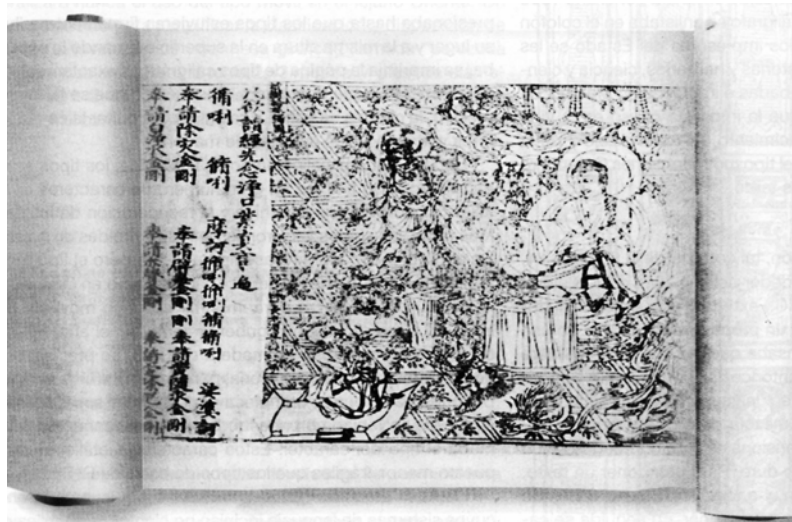 凡欲讀經先念淨口業真言一遍
脩唎 脩唎 摩訶脩唎 脩脩唎 娑婆訶
奉請除災金剛 奉請辟毒金剛 奉請黃隨求金剛
奉請白淨水金剛 奉請赤聲金剛 奉請定除厄金剛